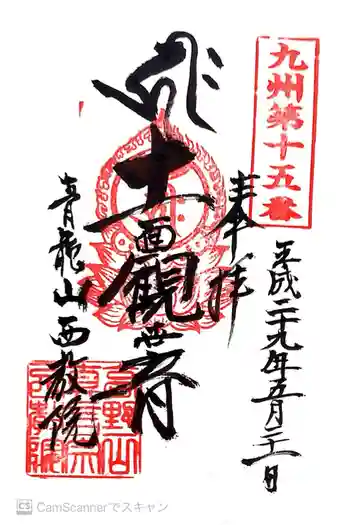 九州第十五番
奉拝
平成二十九年五月二十一日
十一面観世音
青龍山西教院
高野山
CamScannerでスキャン